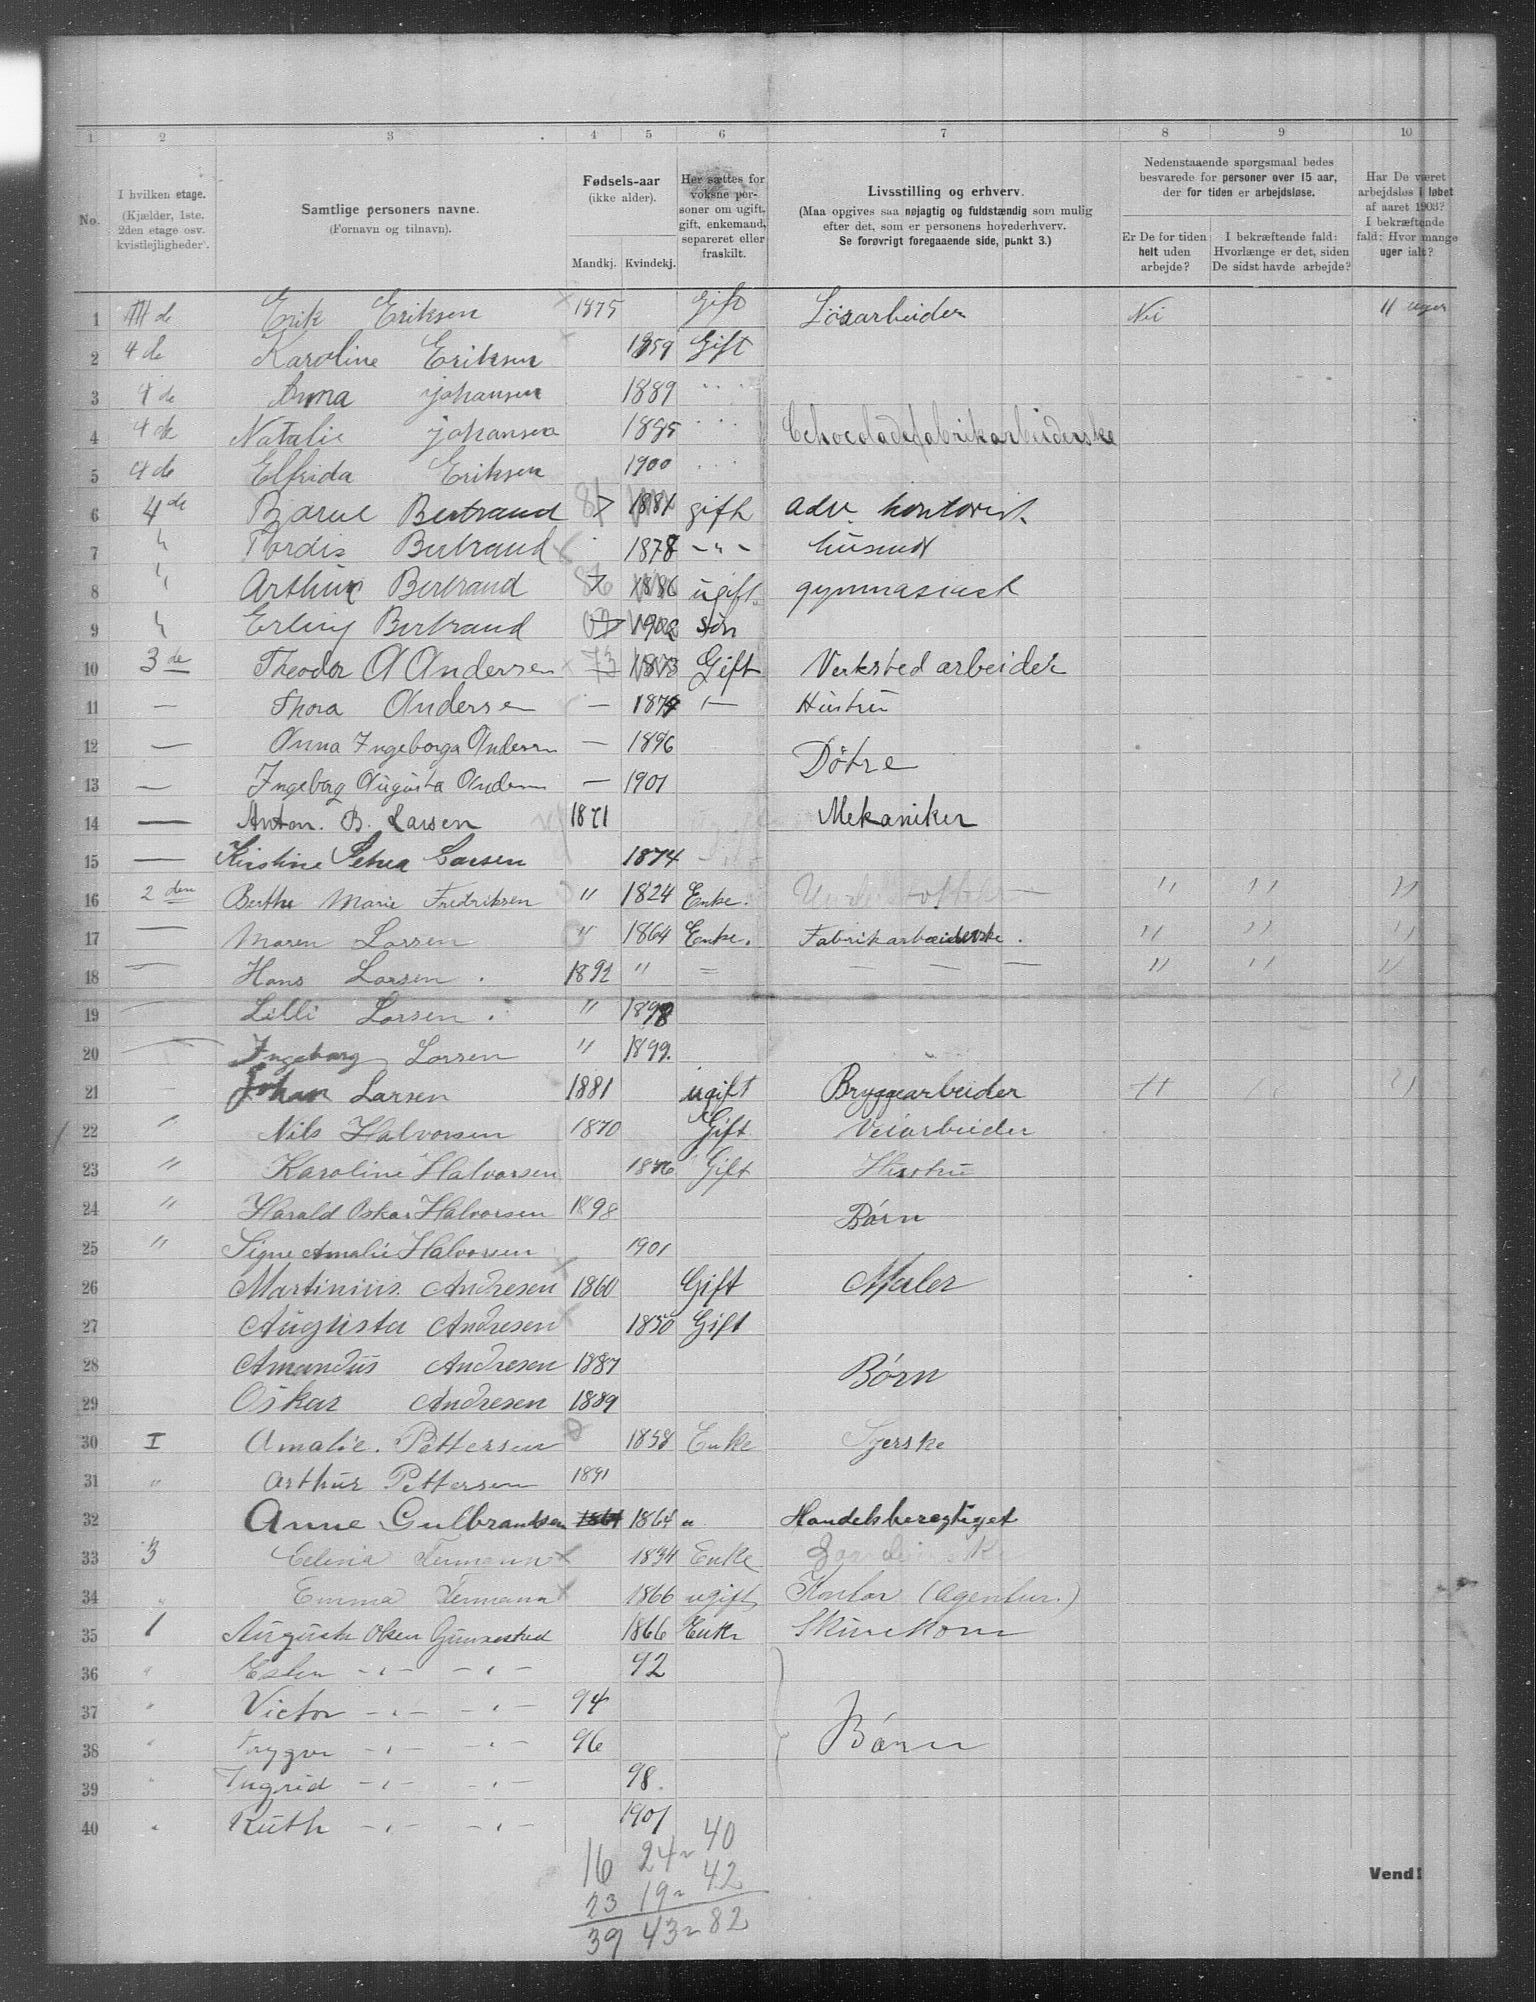 1 2 3 4 5 6 7 8 9 10
No.
I hvilken etage. (Kjælder, 1ste. 2den etage osv. kvistlejligheder.
Samtlige personers navne. (Fornavn og tilnavn).
Fødsels-aar (ikke alder).
Mandkj. Kvindekj.
Her sættes for voksne personer om ugift, gift, enkemand, separeret eller fraskilt.
Livsstilling og erhverv.
(Maa opgives saa nøjagtig og fuldstændig som mulig efter det, som er personens hovederhverv.
Se forøvrigt foregaaende side, punkt 3.)
Nedenstaaende spørgsmaal bedes besvarede for personer over 15 aar, der for tiden er arbejdsløse.
Er De for tiden helt uden arbejde?
I bekræftende fald: Hvorlænge er det, siden De sidst havde arbejde?
Har De været arbejdsløs i løbet af aaret 1903? I bekræftende fald: Hvor mange uger ialt?
1 4de Erik Eriksen 1875 Gift Løsarbeider Nei 11 uger
2 4de Karoline Eriksen 1859 Gift
3 4de Anna Johansen 1889
4 4de Natalie Johansen 1885 Chocoladefabrikarbeiderske
5 4de Elfrida Eriksen 1900
6 4de Bertrand 81 1881 gift adv. kontorist.
7 " Tordis Bertrand 1878 - " - husmod
8 " Arthur Bertrand 86 1886 ugift gymnasiast
9 " Erling Bertrand 02 1902 søn
10 3de Theodor A Andersen 73 1873 Gift Verksted arbeider
11 — Thora Andersen — 1874 — Hustru
12 — Anna Ingeborga Andersn — 1896
13 — Ingeborg Augusta Andersn — 1901 Døtre
14 — Anton. B. Larsen 1871 Mekaniker
15 — Kirstine Petrea Larsen 1874
16 2den Berthe Marie Fredriksen " 1824 Enke. " " "
17 — Maren Larsen " 1864 Enke. Fabrikarbeiderske. " " "
18 — Hans Larsen . 1892 " = — — — " " "
19 — Lilli Larsen . " 1898
20 — Ingeborg Larsen " 1899.
21 Johan Larsen 1881 ugift Bryggearbeider " " "
22 " Nils Halvorsen 1870 Gift Veiarbeider
23 " Karoline Halvorsen 1876 Gift Hustru
24 " Harald Oskar Halvorsen 1898 Børn
25 " Signe Amalie Halvorsen 1901
26 Martinius. Andresen 1860 Gift Maler
27 Augusta Andresen 1850 Gift
28 Amandus Andresen 1887 Børn
29 Oskar Andresen 1889
30 I Amalie. Pettersen 1858 Enke Syerske
31 " Arthur Pettersen 1891
32 Anne Gulbrandsen 1864 1864 " Handelsberegtiget
33 3 1834 Enke
34 " Emma 1866 ugift Kontor (Agentur.)
35 1 Auguste Olsen 1866 Enke
36 " - " - - " - 92
37 " Victor - " - - " - 94
38 " Trygve - " - - " - 96 Børn
39 " Ingrid - " - - " - 98.
40 " Ruth - " - - " - 1901
16 24 - 40
23 19 - 42
39 43 - 82
Vend!